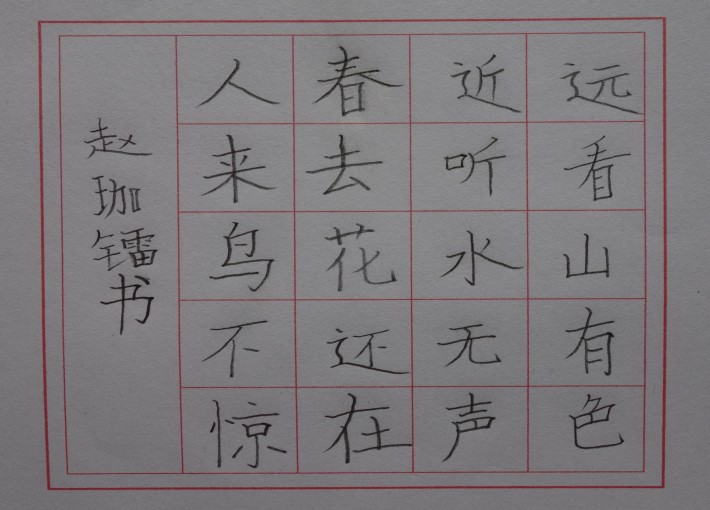 远看山有色
近听水无声
春去花还在
人来鸟不惊
赵珈镭书